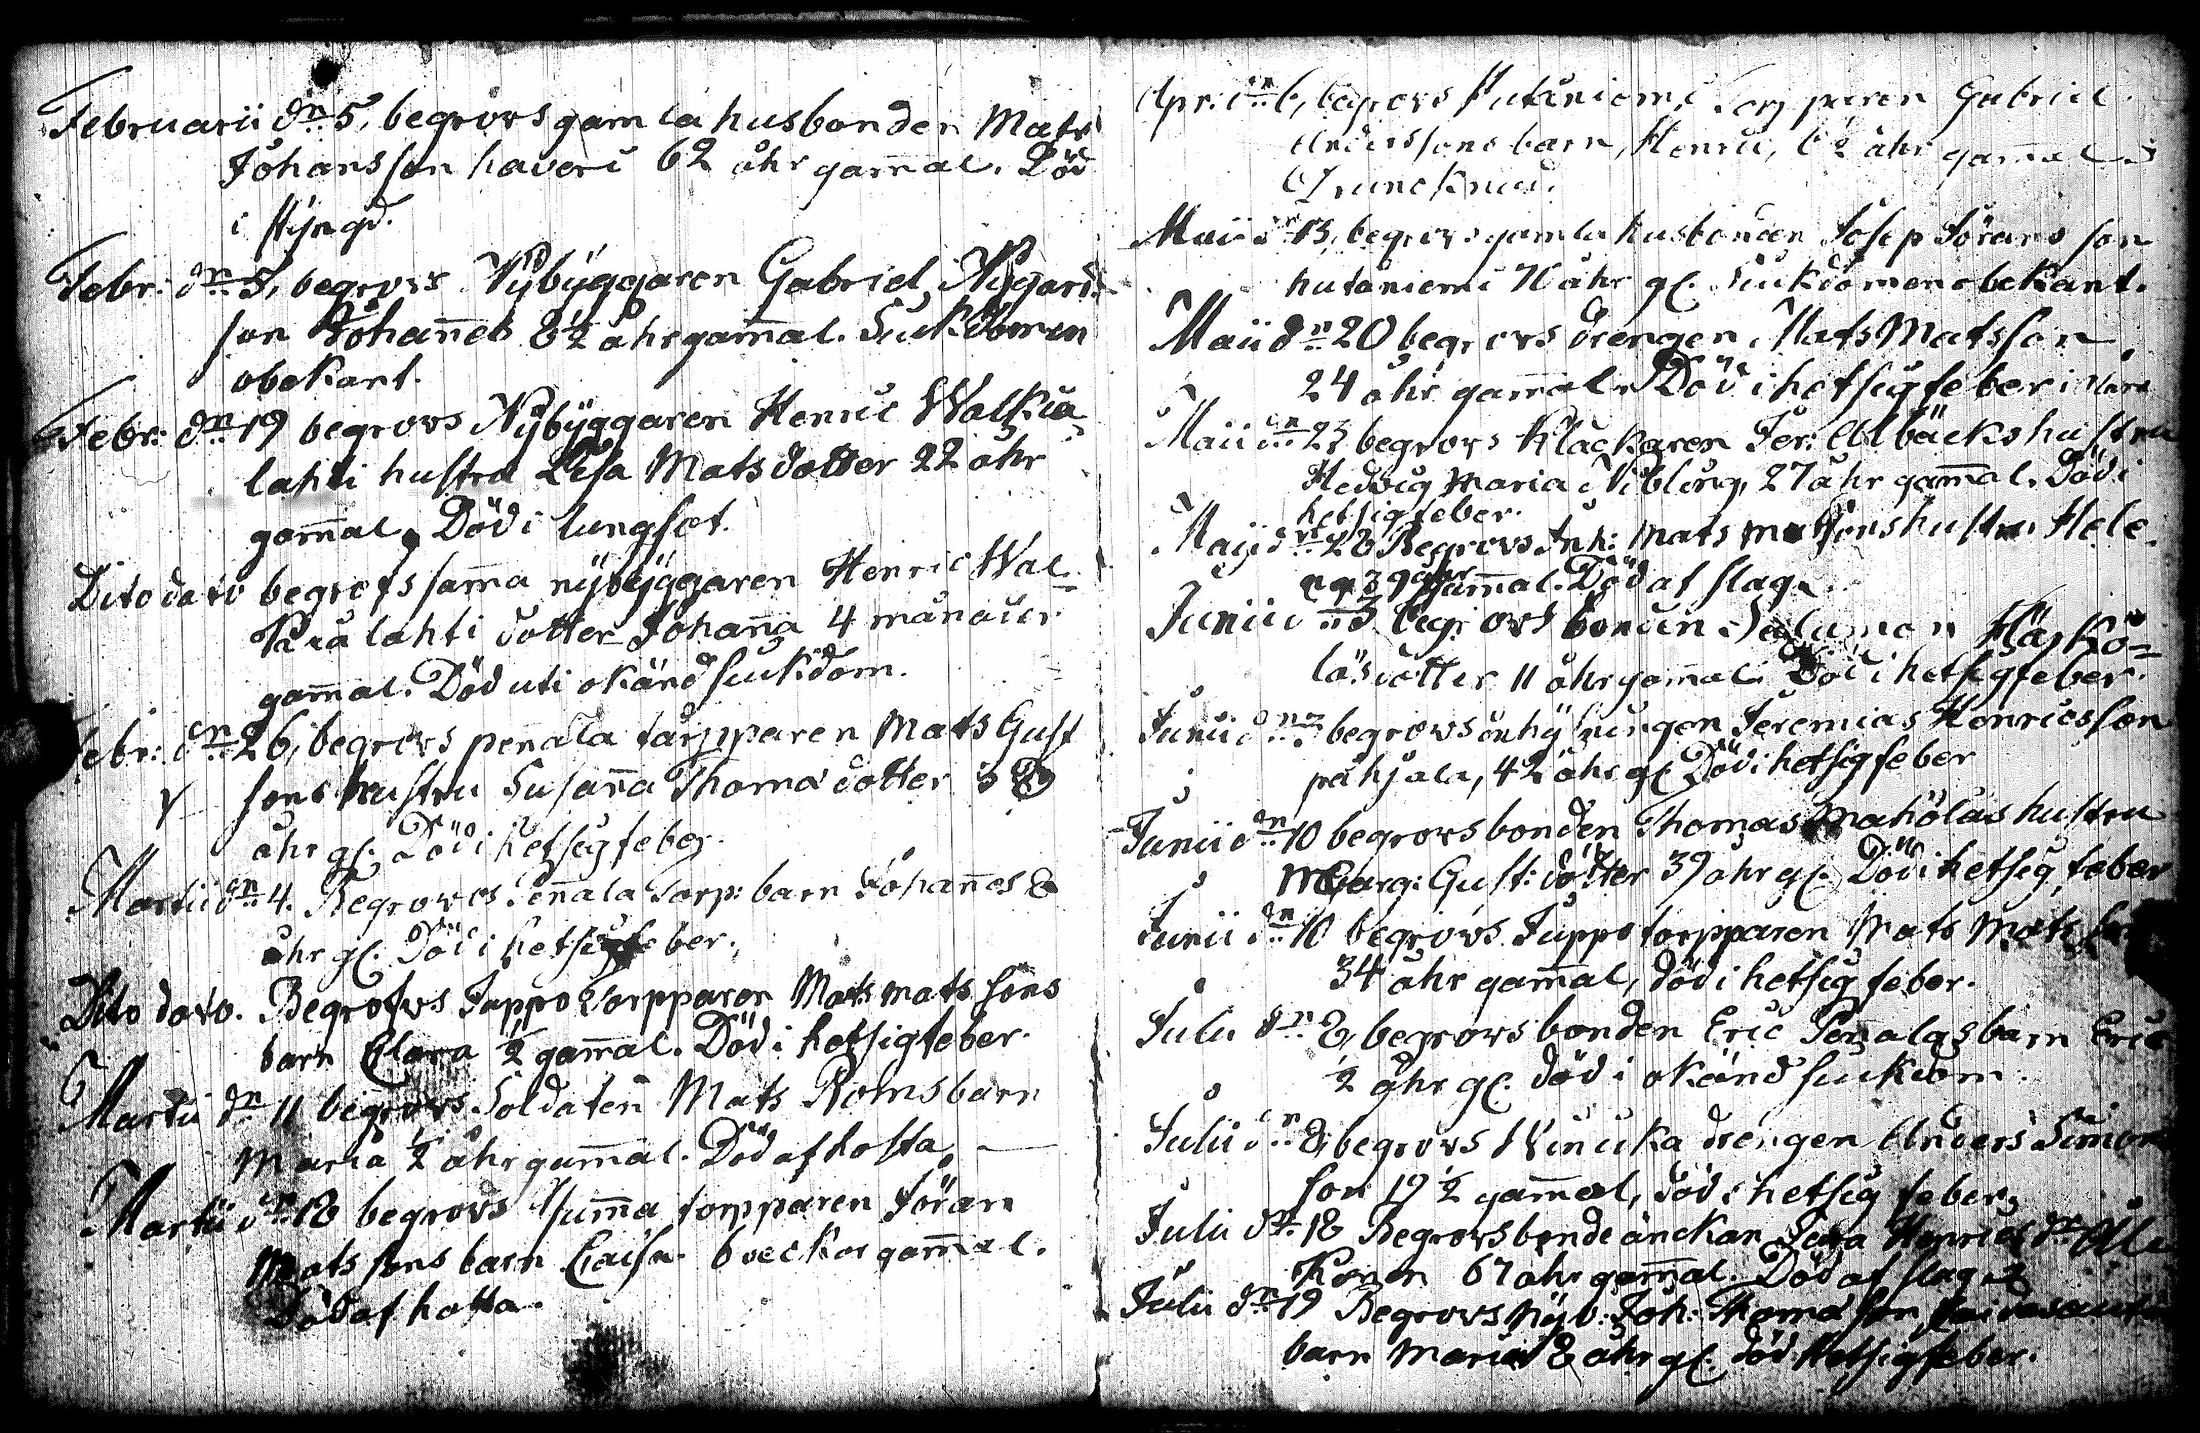 Februarii dn 5, begrovs gamla husbonden Mats
Johansson haveri 62 åhr gam̄al. Död
i styngd.
Febr: dn 5, begrovs Nybyggaren Gabriel Nygards
son Johan̄es 8½ åhr gam̄al. Siukdomen
obekant.
Febr: dn 19 begrovs Nybyggaren Henric Walkia
lahti hustru Lisa Matsdotter 22 åhr
gam̄al. Död i lungsot.
Dito dato begrofs sam̄a nybyggaren Henric Wal
kialahti dotter Johan̄a 4 månader
gam̄al. Död uti okänd siukdom.
Febr: dn 26, begrovs pen̄ala tarpparen Mats Gust
sons hustru Susan̄a Thomadotter
åhr gl. Död i hetsigfeber.
Martii dn 4. Begrovs Pen̄ala Torp: barn Johan̄es 8
åhr gl. Död i hetsigfeber.
Dito dato. Begrofvs Juppo Torpparen Mats Mats sons
barn Clara ½ gam̄al. Död i hetsigfeber.
Martii dn 11 begrovs Soldaten Mats Roms barn
Maria ½ åhr gam̄al. Död af hosta.
Martii dn 18 begrovs torpparen Jöran
Mats sons barn Caisa 6 veckor gam̄al.
Död af hosta.
Apr: dn 6, begrovs Hutaniemi Torpparen Gabriel
Anderssons barn, Henric, 6½ åhr gam̄al.
Druncknad.
Maii dn 13, begrovs gamla husbonden Josep Jörans son
hutaniemi 70 åhr gl. Siukdomen obekant.
Maii dn 20 begrovs drengen Mats Matsson
24 åhr gam̄al. Död i hetsigfeber
Maii dn 23 begrovs Klåckaren Jer: Ahlbäcks hustru
Hedvig Maria Nibling, 27 åhr gam̄al. Död i
hetsigfeber.
Maij dn 28 Begrovs Inh: Mats Matssons hustru Hele
na 39 åhr gam̄al. Död af slag.
Junii dn 3 begrovs bonden Salumon Häskö=
läs dotter 11 åhr gam̄al. Död i hetsigfeber.
Junii dn 3 begrovs inhysingen Jeremias Henricsson
påhjala, 42 åhr gl. Död i hetsigfeber
Junii dn 10 begrovs bonden Thomas Maholas hustru
Marg: Gust: dotter 39 åhr gl. Död i hetsig feber
Junii dn 10 begrovs Juppo torpparen Mats Mats
34 åhr gam̄al, död i hetsig feber.
Julii dn 8, begrovs bonden Eric Pen̄alas barn Eric
½ åhr gl. död i okänd siukdom.
Julii dn 8, begrovs Winicka drengen Anders Simon
son 19½ gam̄al, död i hetsig feber,
Julii dn 18 Begrovs bonde änckan Henrics dr
67 åhr gam̄al. Död af slag
Julii dn 19 Begrovs Nyb: Joh: Thoma son
barn Maria 8 åhr gl. död hetsigfeber.